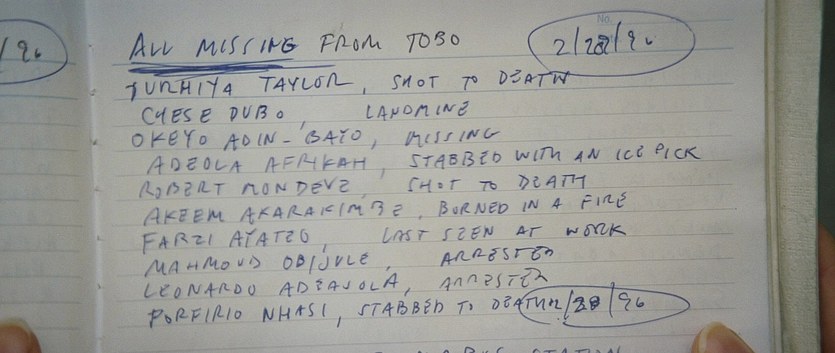 /96
No.
ALL MISSING FROM TOBO 2/28/96
TURHIYA TAYLOR, SHOT TO DEATH
CHESE DUBO, LANDMINE
OKEYO ADIN-BAYO, MISSING
ADEOLA AFRIKAH, STABBED WITH AN ICE PICK
ROBERT MONDEVE, SHOT TO DEATH
AKEEM AKARAKIMBE, BURNED IN A FIRE
FARZI AYATEO, LAST SEEN AT WORK
MAHMOUD OBIJULE, ARRESTED
LEONARDO ADEAJOLA, ARRESTED
PORFIRIO NHASI, STABBED TO DEATH 2/28/96
BUS STATION